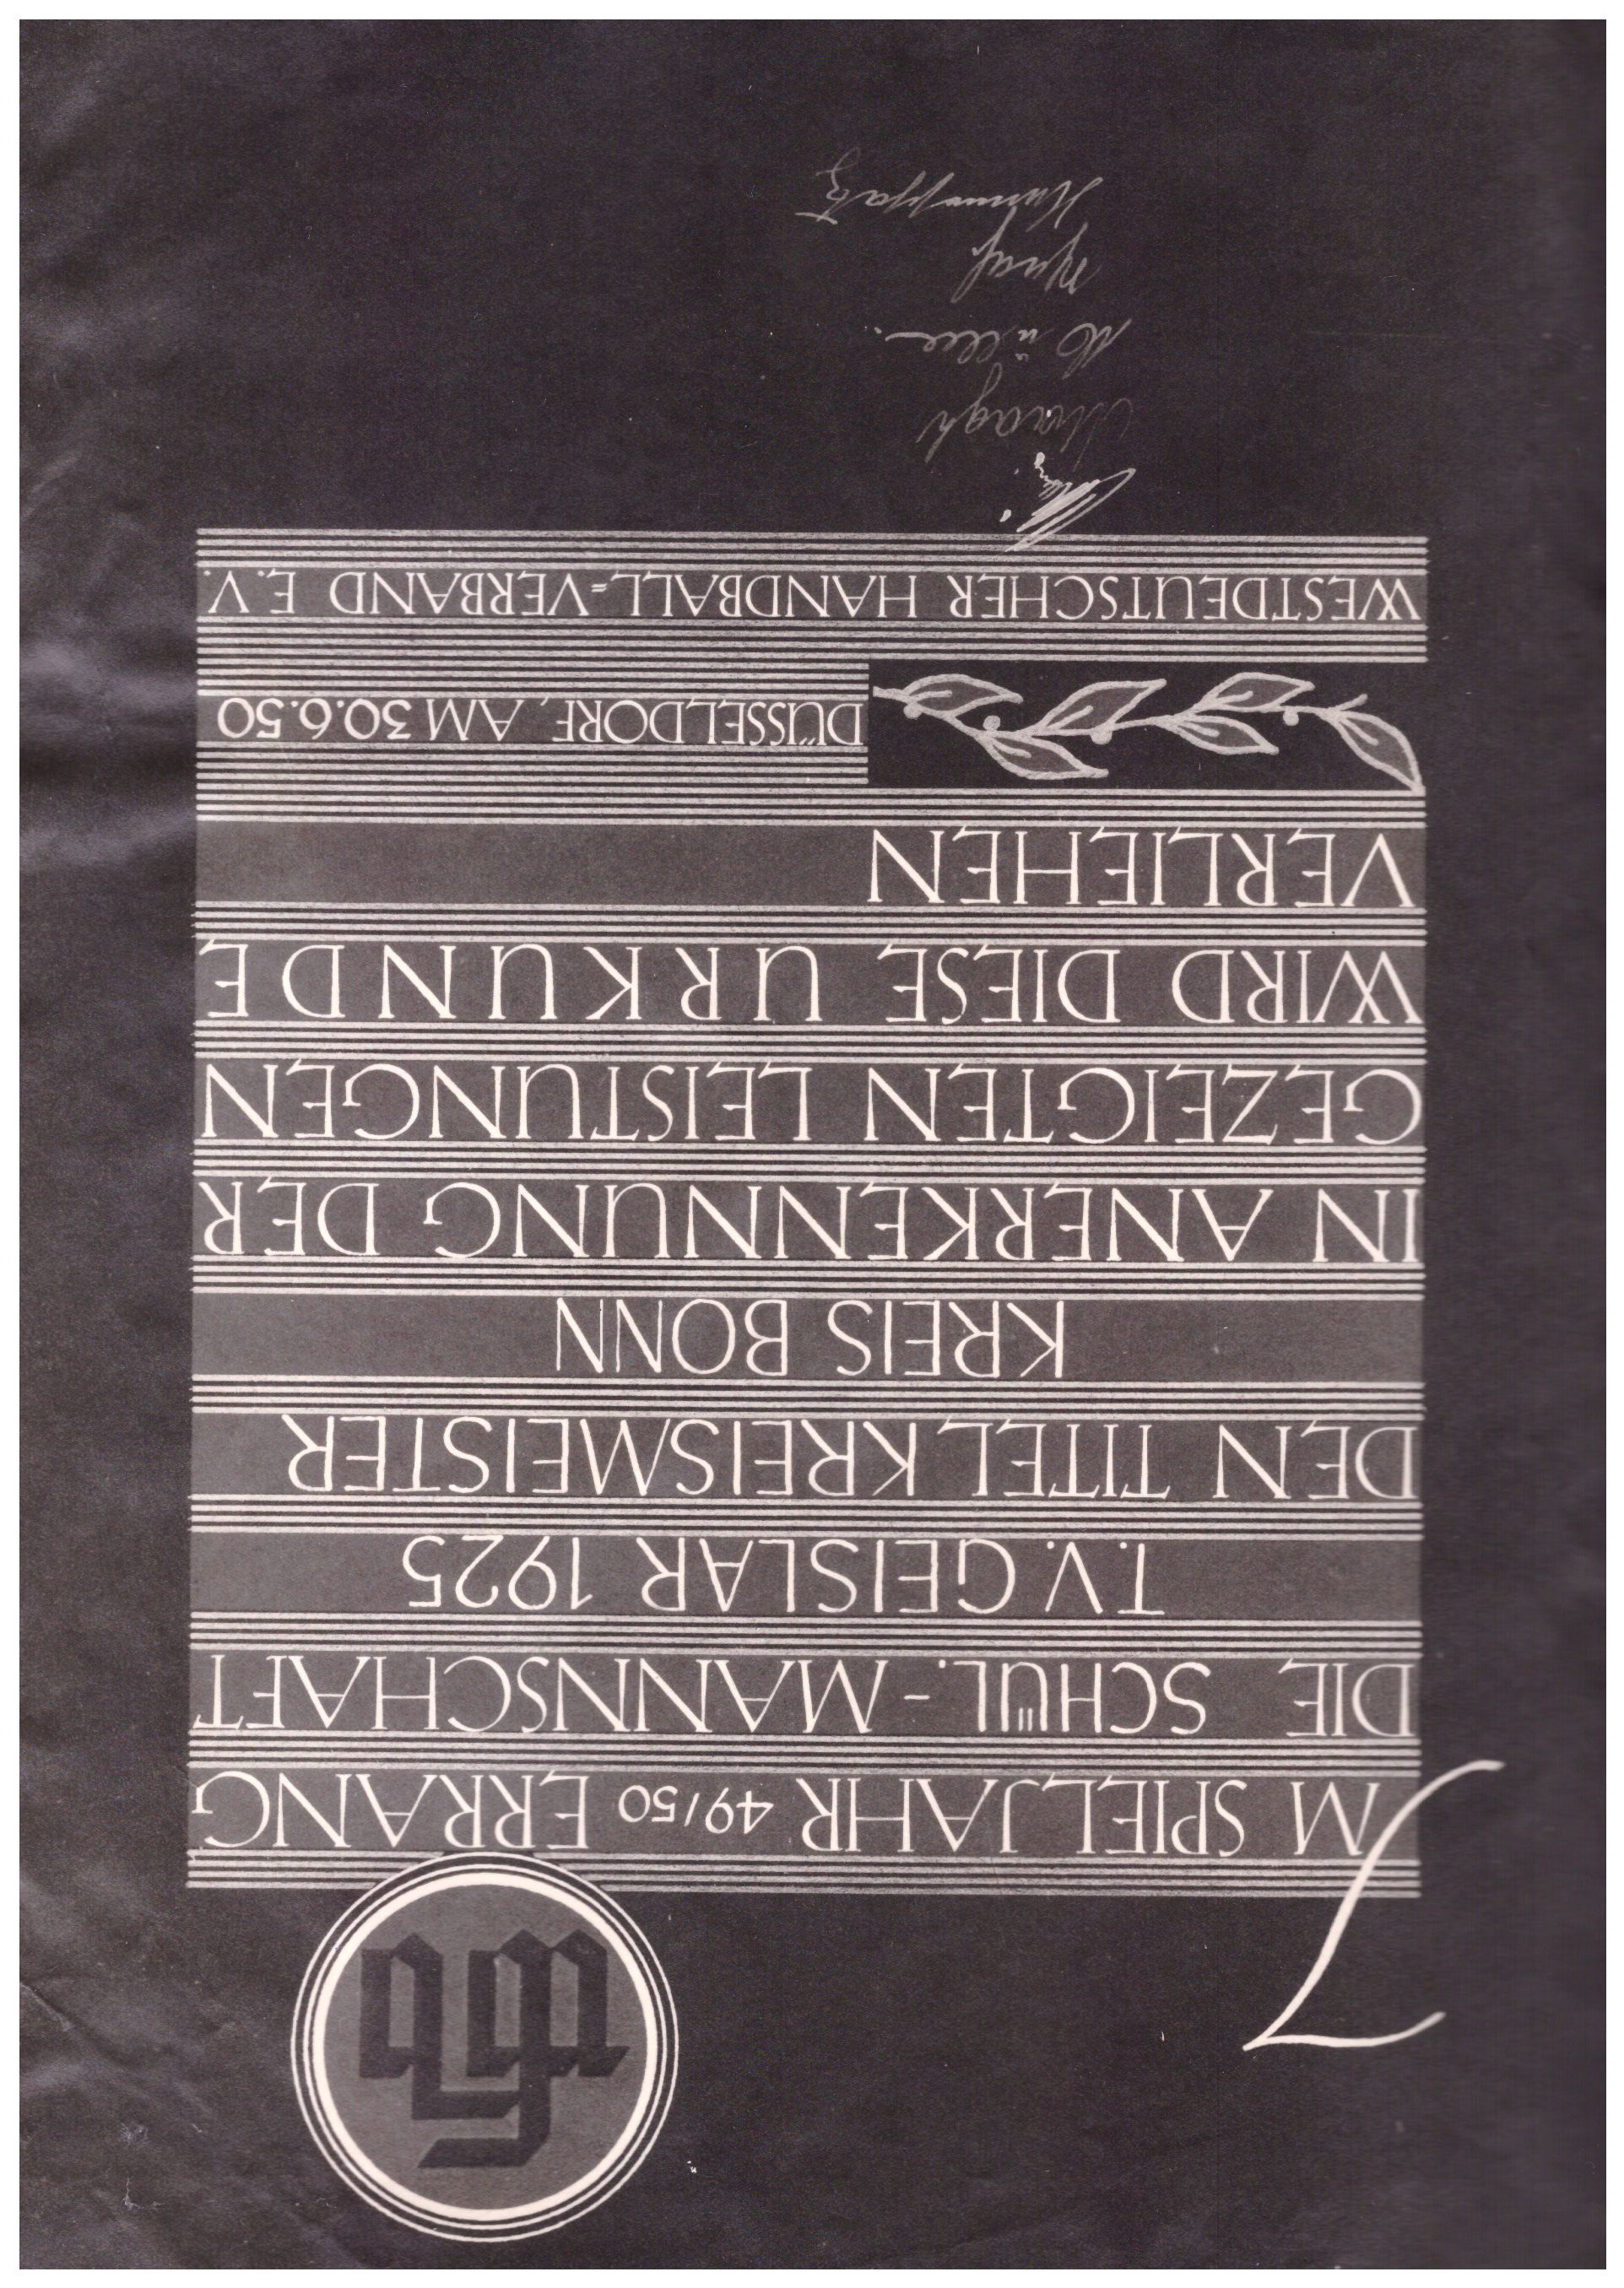 IM SPIELJAHR 49/50 ERRANG
DIE SCHÜL.-MANNSCHAFT
T.V. GEISLAR 1925
DEN TITEL KREISMEISTER
KREIS BONN
IN ANERKENNUNG DER
GEZEIGTEN LEISTUNGEN
WIRD DIESE URKUNDE
VERLIEHEN
DÜSSELDORF, AM 30.6.50
WESTDEUTSCHER HANDBALL=VERBAND E.V.
Müller